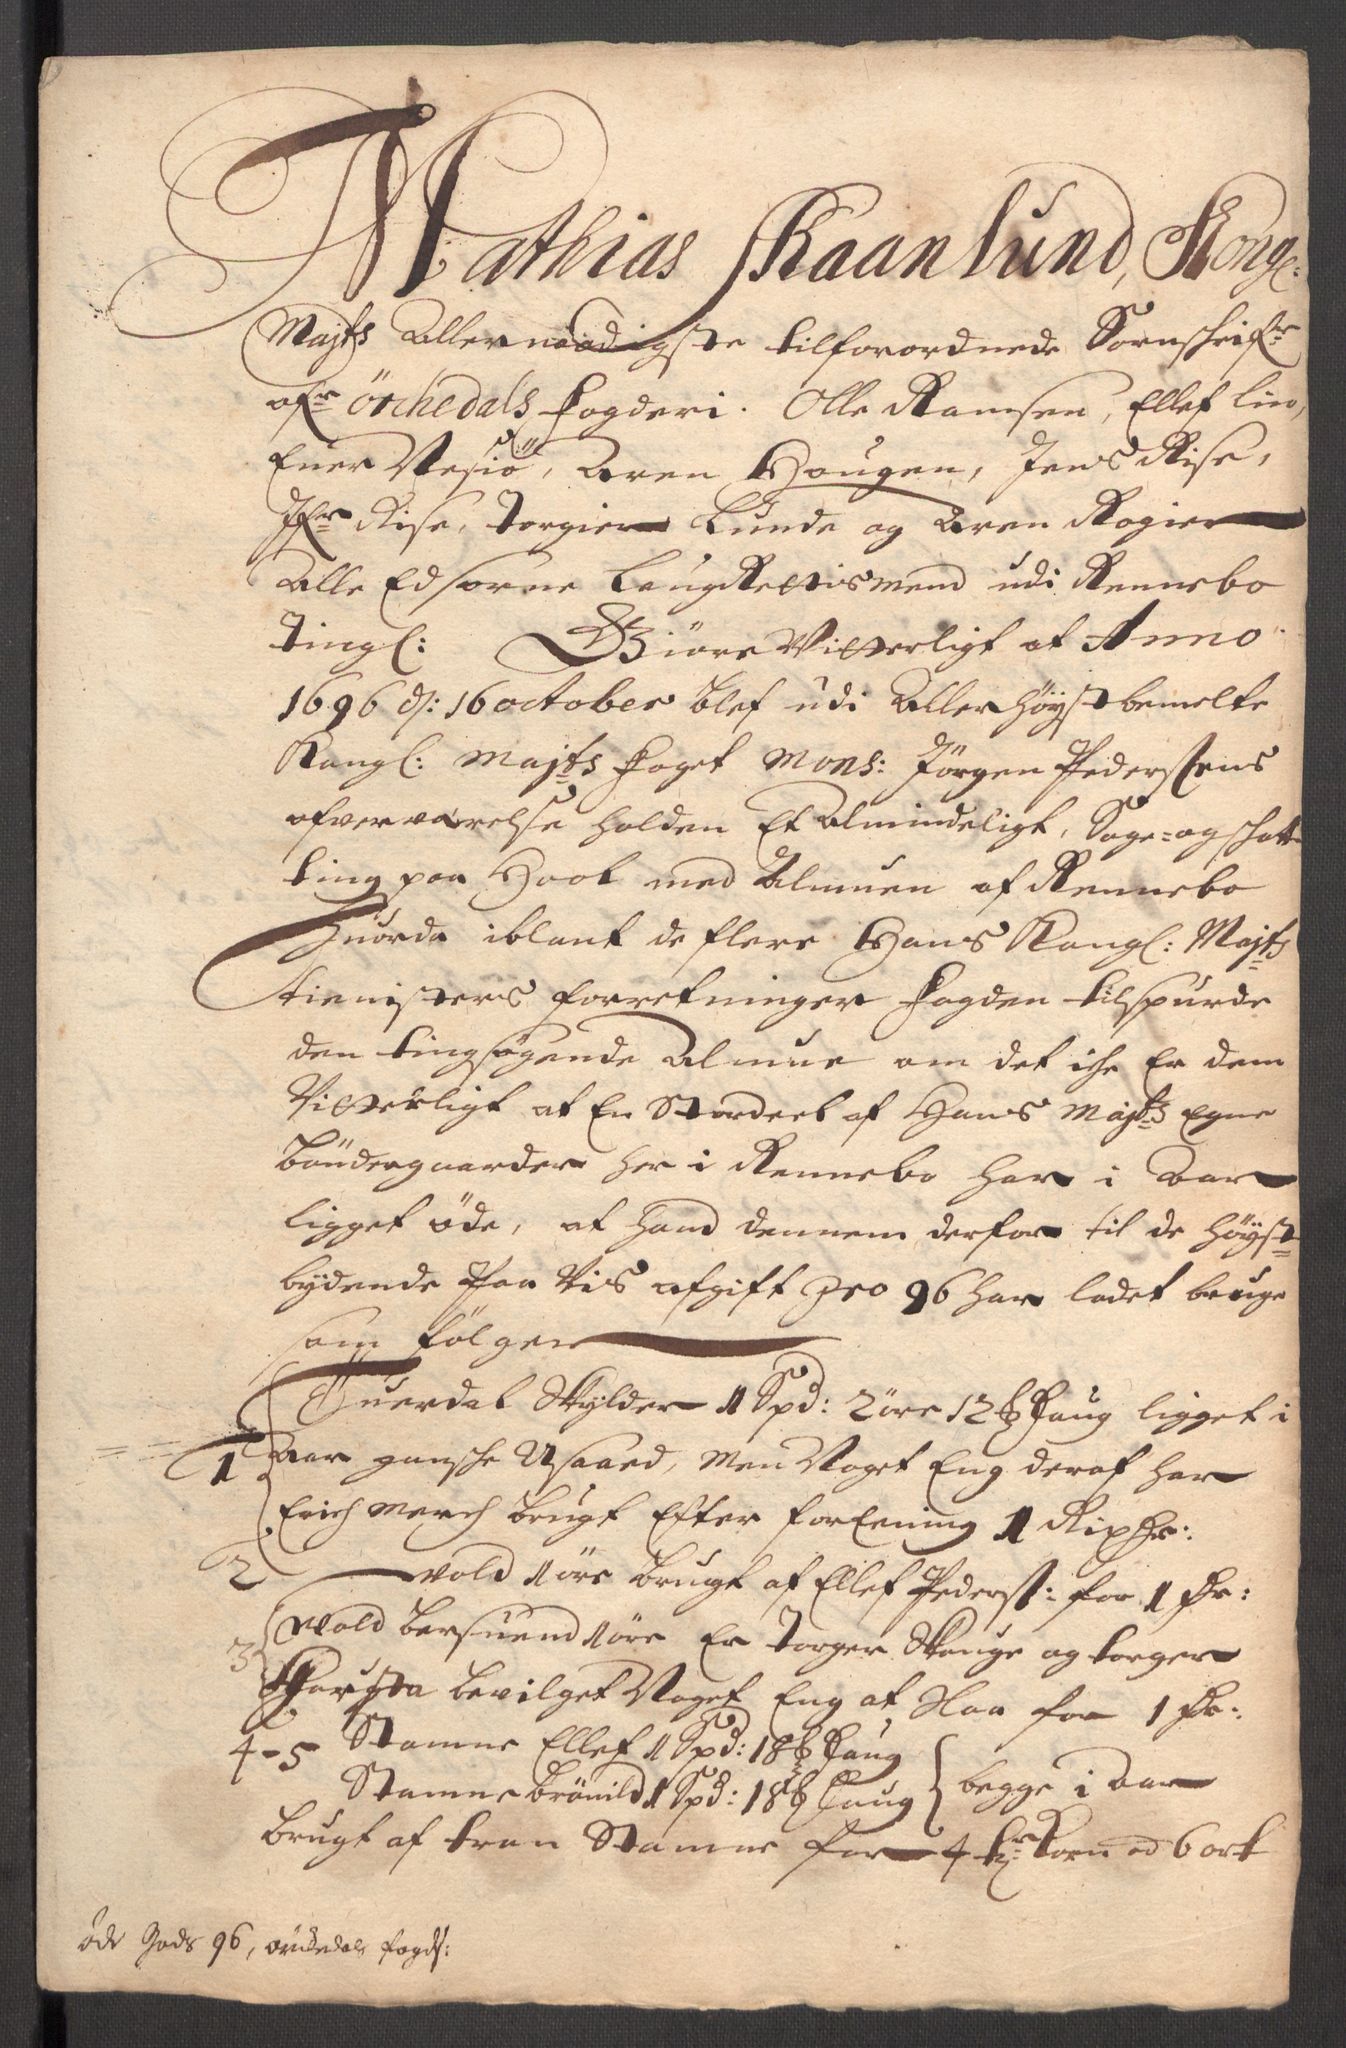 Mathias Skaanlund, Kongl:
Majts Allernaadigste tilforordnede Sornschrifr
ofr örchedals fogderi. Olle Ramsen, Ellef lien,
Ener Næsiö, Aren Haugen, Jens Rise,
Ifr Rise, Torgier Lunde og Aren Rogier
Alle Edsorne LaugRettismend udi Rennebo
Tingl: Giöre Vitterligt at Anno
1696 d: 16 october blef udi Allerhöystbemelte
Kongl: Majts foget Mons: Jörgen Pederssens
ofverværelse holden Et Almindeligt, Sage- og schatte
ting paa Hoel med Almuen af Rennebo
Huorda iblant de flere Hans Kongl: Majts
tienisters forretninger fogden tilspurde
den tingsøgende Almue om det iche Er dem
Vitterligt at En Stordeel af Hans Majts Egne
böndergaarder her i Rennebo har i Aar
ligget öde, at hand dennem derfor til de höyst
bydende Paa Vis afgift pro 96 har ladet bruge
som fölger
1 Huerdal Skylder 1 Spd: 2 öre 12 Laug ligget i
Aar gansche Usaaed, Men Noget Eng deraf har
Erich Merch brugt Efter forEening 1 Rixdr:
2 Wold 1 öre brugt af Ellef Pederss: for 1 dr:
3 Wold bersuend 1 öre Er Torger Skauge og torger
Haugsta bevilget Noget Eng at Slaa for 1 dr:
4-5 Stamne Ellef 1 Spd: 18 Laug
Stamne brönild 1 Spd: 18 Laug begge i Aar
brugt af tran Stamne for 4 tr Korn ad 6 ort
öde Gods 96, örchedals fogd: